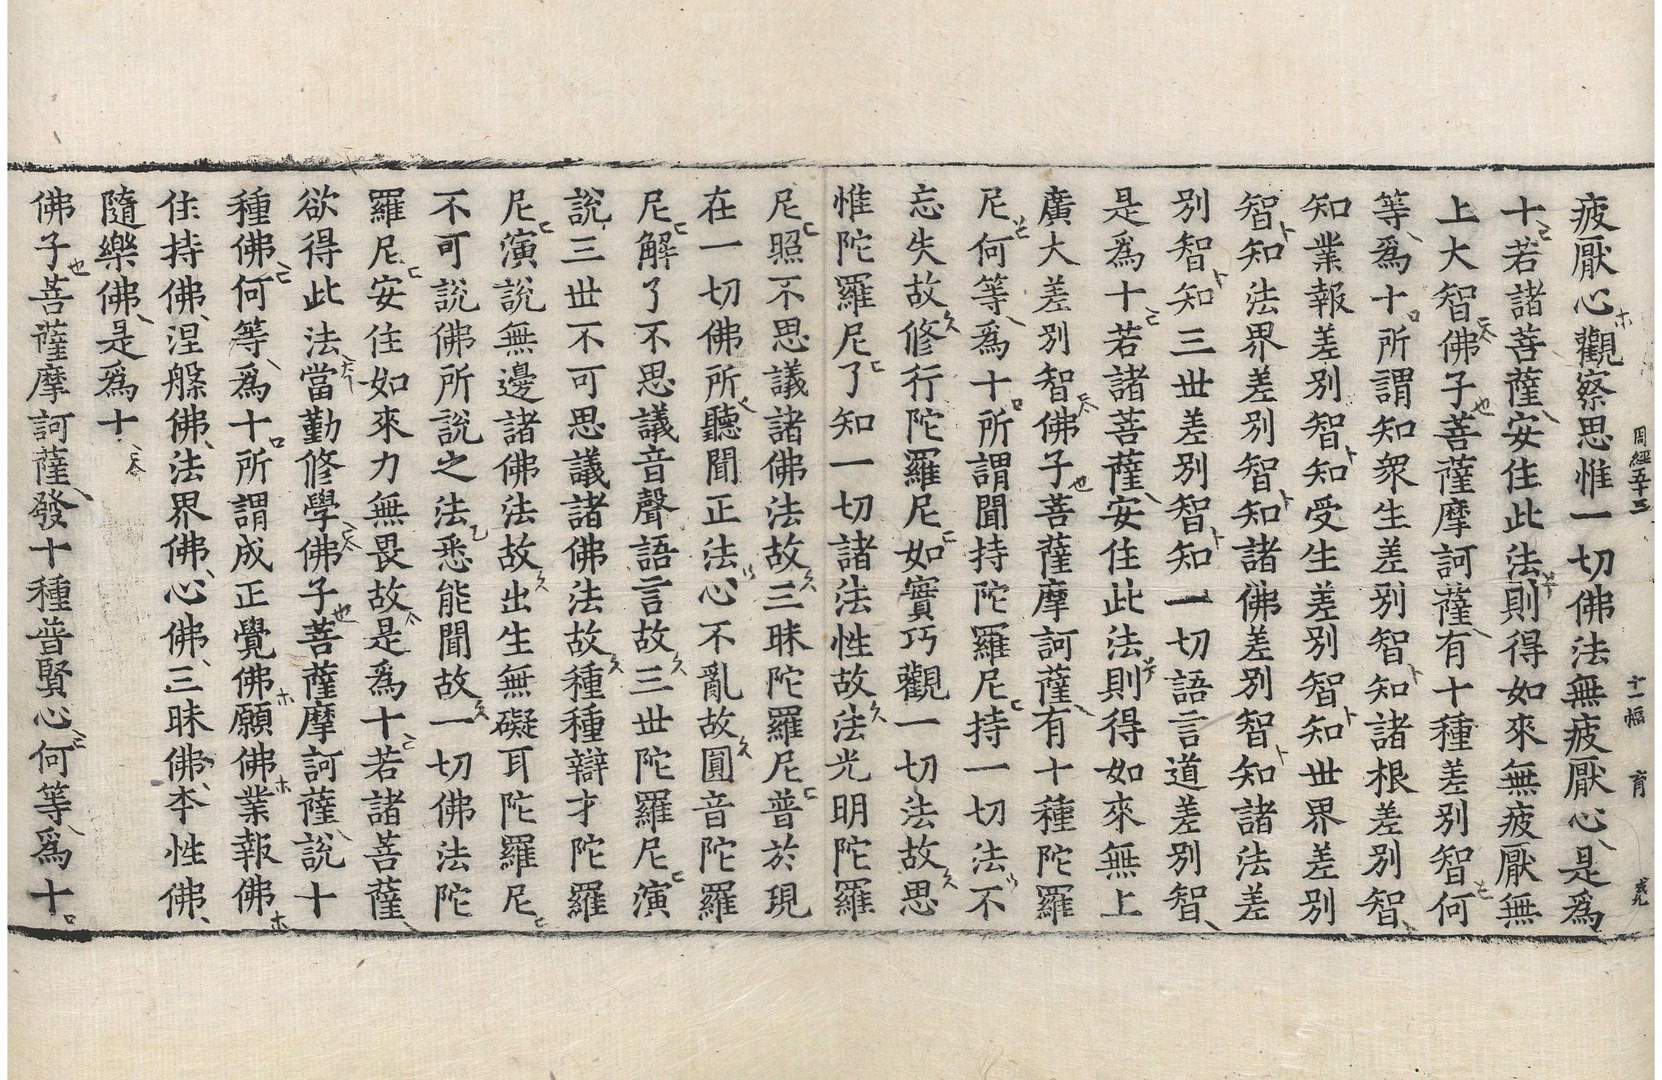 周經五十三 十一幅 育 戒九
疲厭心觀察思惟一切佛法無疲厭心是爲
十若諸菩薩安住此法則得如來無疲厭無
上大智佛子菩薩摩訶薩有十種差別智何
等爲十所謂知衆生差別智知諸根差別智
知業報差別智知受生差別智知世界差別
智知法界差別智知諸佛差別智知諸法差
別智知三世差別智知一切語言道差別智
是爲十若諸菩薩安住此法則得如來無上
廣大差別智佛子菩薩摩訶薩有十種陀羅
尼何等爲十所謂聞持陀羅尼持一切法不
忘失故修行陀羅尼如實巧觀一切法故思
惟陀羅尼了知一切諸法性故法光明陀羅
尼照不思議諸佛法故三昧陀羅尼普於現
在一切佛所聽聞正法心不亂故圓音陀羅
尼解了不思議音聲語言故三世陀羅尼演
說三世不可思議諸佛法故種種辯才陀羅
尼演說無邊諸佛法故出生無礙耳陀羅尼
不可說佛所說之法悉能聞故一切佛法陀
羅尼安住如來力無畏故是爲十若諸菩薩
欲得此法當勤修學佛子菩薩摩訶薩說十
種佛何等爲十所謂成正覺佛願佛業報佛
住持佛涅槃佛法界佛心佛三昧佛本性佛
隨樂佛是爲十
佛子菩薩摩訶薩發十種普賢心何等爲十